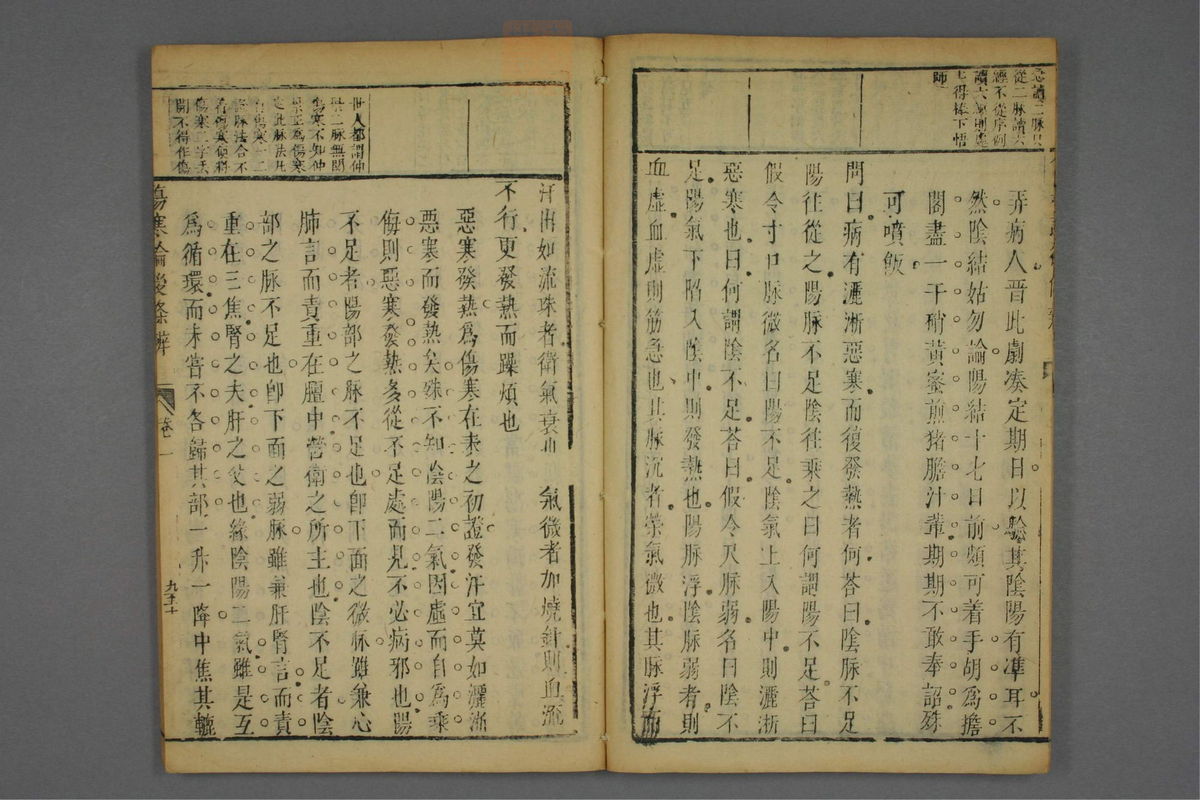 忘讀二脉只
從二脉讀六
經不從序例
讀六經則處
處得棒下悟
師
弄病人晉此劇湊定期日以驗其陰陽有準耳不
然陰結姑勿論陽結十七日前頗可着手胡為擔
閣盡一干硝黃蜜煎猪膽汁輩期期不敢奉詔殊
可噴飯
問曰病有灑淅惡寒而復發熱者何荅曰陰脉不足
陽往從之陽脉不足陰往乘之曰何謂陽不足荅曰
假令寸口脉微名曰陽不足陰氣上入陽中則灑淅
惡寒也曰何謂陰不足荅曰假令尺脉弱名曰陰不
足陽氣下陷入陰中則發熱也陽脉浮陰脉弱者則
血虛血虛則筋急也其脉沉者榮氣微也其脉浮而
世人都謂仲
景二脉無關
傷寒不知仲
景正為傷寒
傷寒二字丟
開不得作傷
汗出如流珠者衛氣衰也 氣微者加燒針則血流
不行更發熱而躁煩也
惡寒發熱為傷寒在表之初證發汗宜莫如灑淅
惡寒而發熱矣殊不知陰陽二氣因虛而自為乘
侮則惡寒發熱多從不足處而見不必病邪也陽
不足者陽部之脉不足也卽下面之微脉雖兼心
肺言而責重在膻中營衛之所主也陰不足者陰
部之脉不足也卽下面之弱脉雖兼肝腎言而責
重在三焦腎之夫肝之父也緣陰陽二氣雖是互
為循環而未嘗不各歸其部一升一降中焦其轆
傷寒論後條辨 卷一